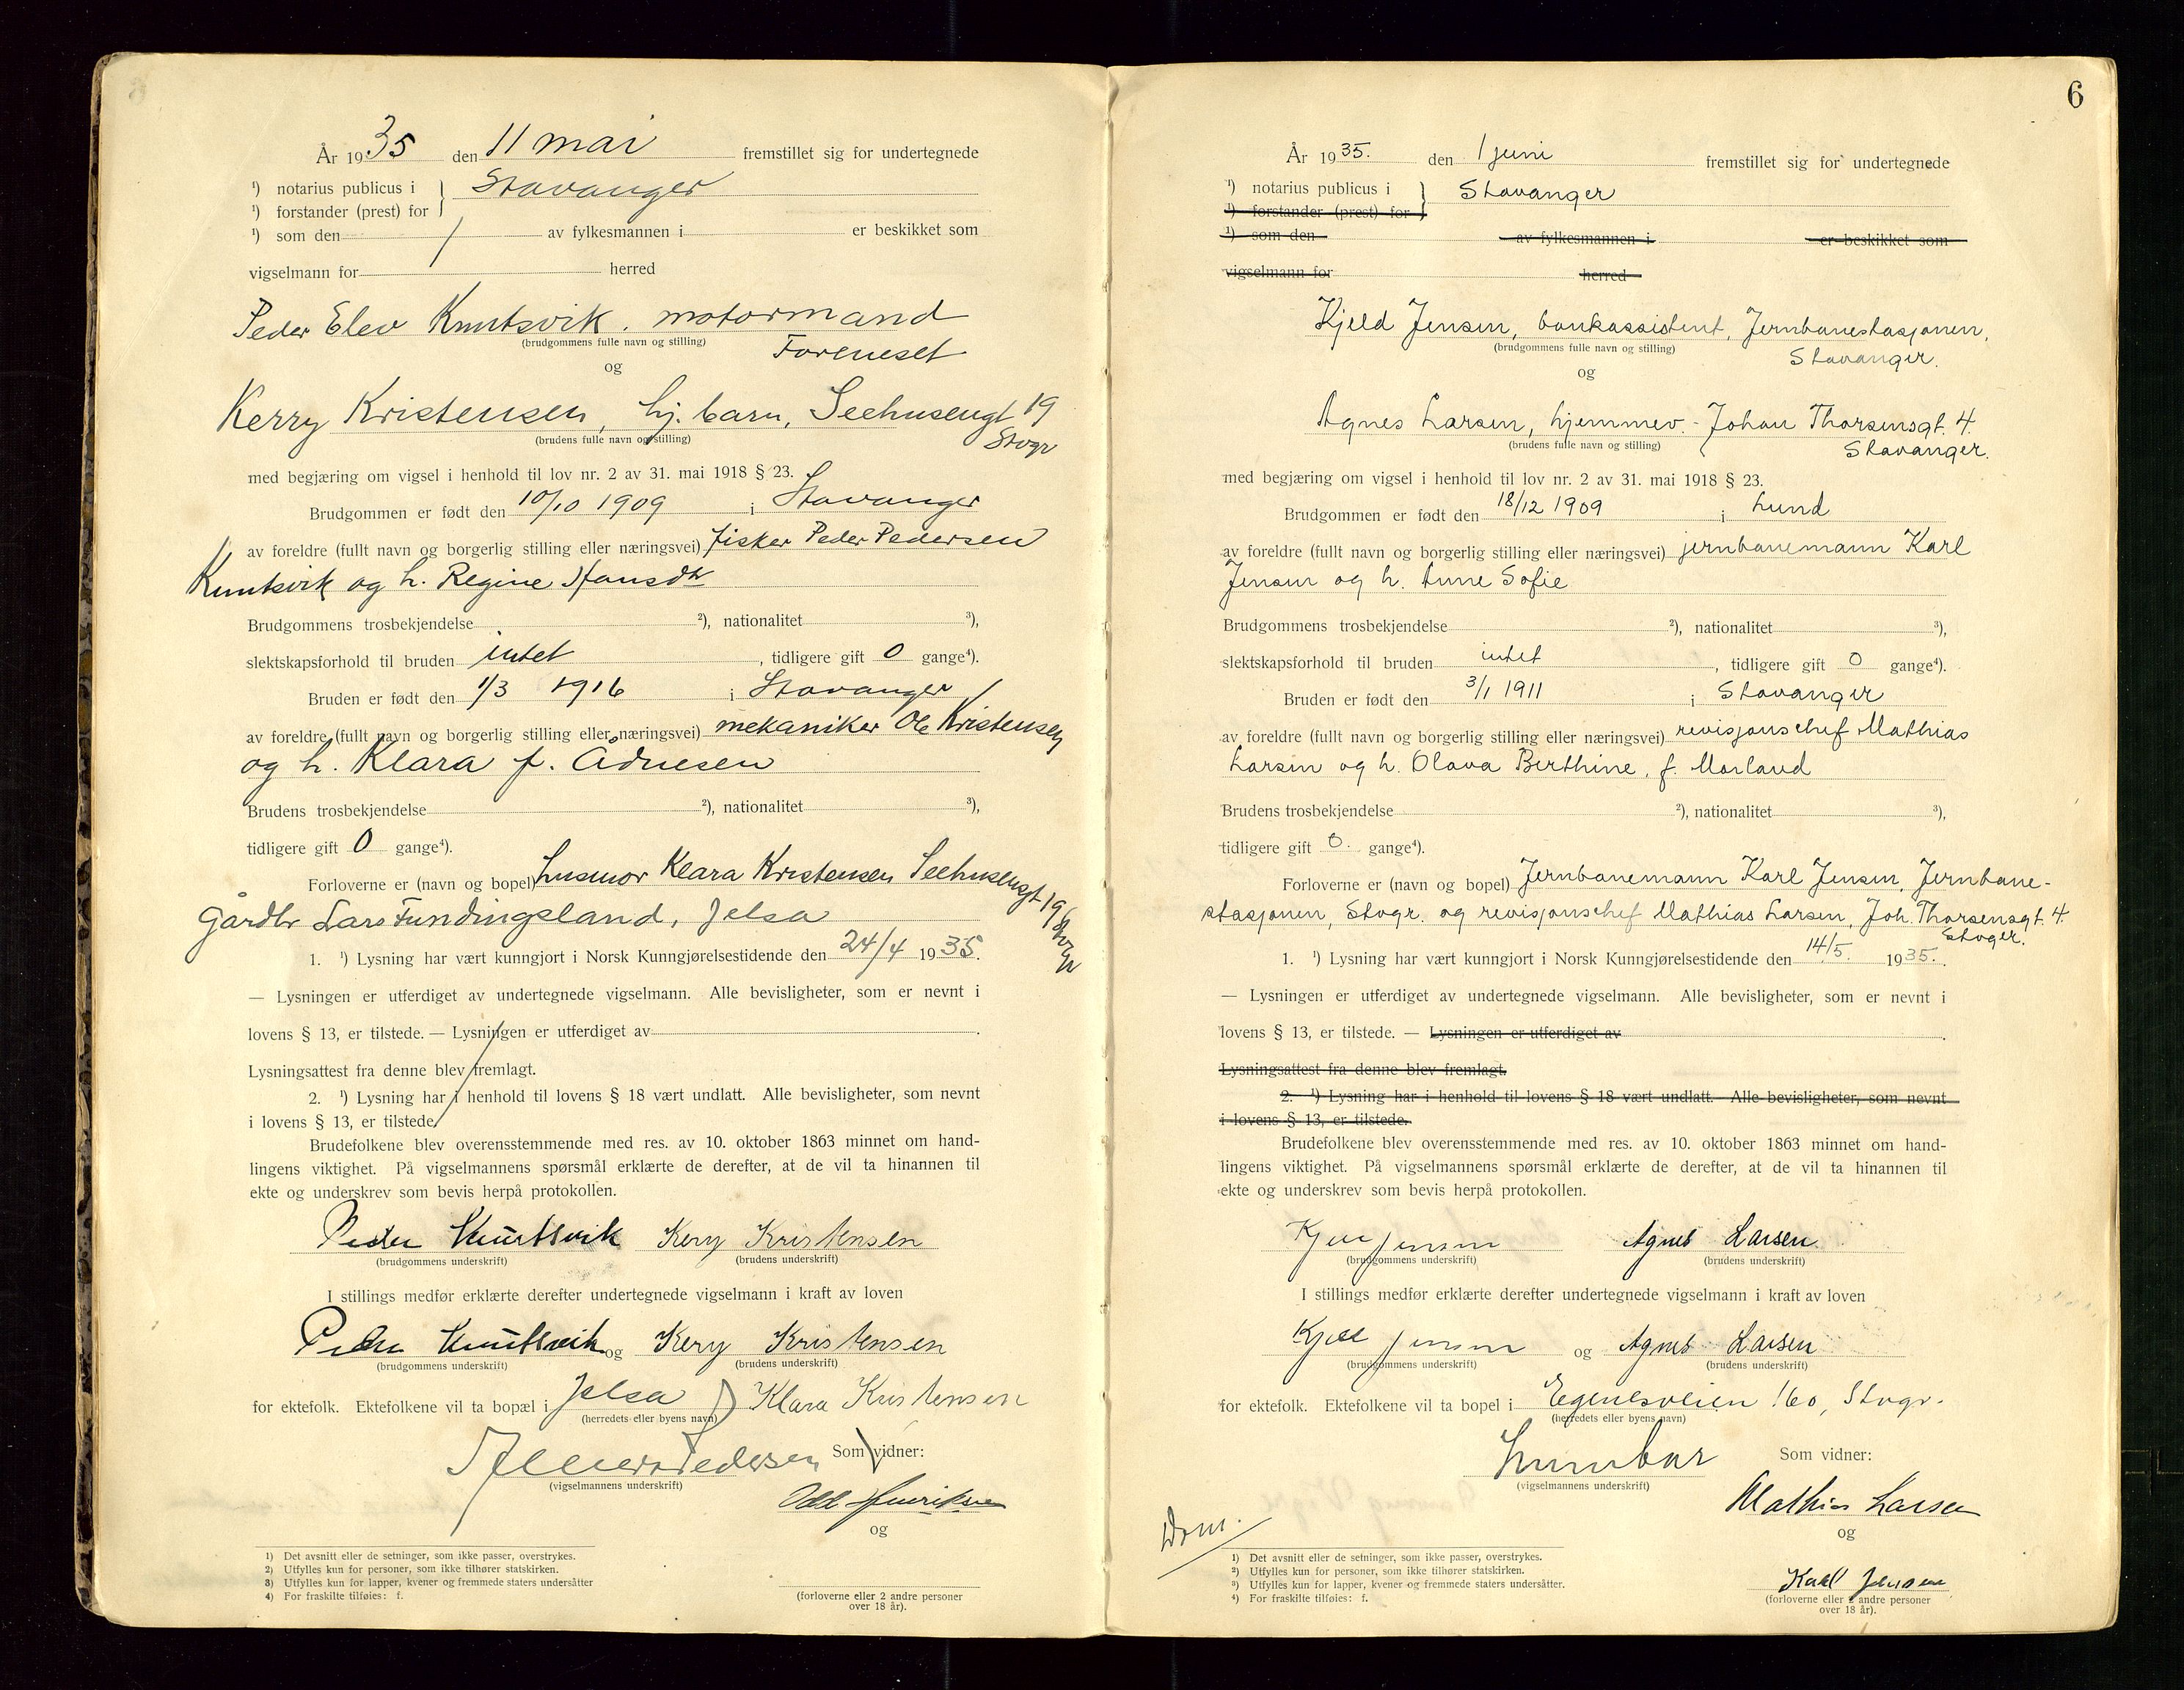 År 1935 den 11 mai fremstillet sig for undertegnede
¹) notarius publicus i } Stavanger
¹) forstander (prest) for
¹) som den av fylkesmannen i er beskikket som
vigselmann for herred
Peder Elev Knutsvik. motormand
(brudgommens fulle navn og stilling) Foreneset
og
Kerry Kristensen, hj. barn, Seehusengt 19
(brudens fulle navn og stilling) Stvgr
med begjæring om vigsel i henhold til lov nr. 2 av 31. mai 1918 § 23.
Brudgommen er født den 10/10 1909 i Stavanger
av foreldre (fullt navn og borgerlig stilling eller næringsvei) fisker Peder Pedersen
Knutsvik og h. Regine Hansdtr
Brudgommens trosbekjendelse ²), nationalitet ³),
slektskapsforhold til bruden intet, tidligere gift 0 gange⁴).
Bruden er født den 1/3 1916 i Stavanger
av foreldre (fullt navn og borgerlig stilling eller næringsvei) mekaniker Ole Kristensen
og h. Klara f. Adnesen
Brudens trosbekjendelse ²), nationalitet ³),
tidligere gift 0 gange⁴).
Forloverne er (navn og bopel) husmor Klara Kristensen Seehusengt 19
Gårdbr Lars Fundingsland, Jelsa Stvgr
1. ¹) Lysning har vært kunngjort i Norsk Kunngjørelsestidende den 24/4 1935.
— Lysningen er utferdiget av undertegnede vigselmann. Alle bevisligheter, som er nevnt i
lovens § 13, er tilstede. — Lysningen er utferdiget av .
Lysningsattest fra denne blev fremlagt.
2. ¹) Lysning har i henhold til lovens § 18 vært undlatt. Alle bevisligheter, som nevnt
i lovens § 13, er tilstede.
Brudefolkene blev overensstemmende med res. av 10. oktober 1863 minnet om hand-
lingens viktighet. På vigselmannens spørsmål erklærte de derefter, at de vil ta hinannen til
ekte og underskrev som bevis herpå protokollen.
Peder Knutsvik Kery Kristensen
(brudgommens underskrift) (brudens underskrift)
I stillings medfør erklærte derefter undertegnede vigselmann i kraft av loven
Peder Knutsvik og Kery Kristensen
(brudgommens underskrift) (brudens underskrift)
for ektefolk. Ektefolkene vil ta bopæl i Jelsa Klara Kristensen
(herredets eller byens navn)
Pedersen Som vidner:
(vigselmannens underskrift)
Odd Henriksen
og
1) Det avsnitt eller de setninger, som ikke passer, overstrykes.
2) Utfylles kun for personer, som ikke tilhører statskirken.
3) Utfylles kun for lapper, kvener og fremmede staters undersåtter
4) For fraskilte tilføies: f.
(forloverne eller 2 andre personer
over 18 år).
6
År 1935. den 1 juni fremstillet sig for undertegnede
¹) notarius publicus i } Stavanger
¹) forstander (prest) for
¹) som den av fylkesmannen i er beskikket som
vigselmann for herred
Kjeld Jensen, bankassistent, Jernbanestasjonen,
(brudgommens fulle navn og stilling) Stavanger.
og
Agnes Larsen, hjemmev. - Johan Thorsensgt. 4.
(brudens fulle navn og stilling) Stavanger.
med begjæring om vigsel i henhold til lov nr. 2 av 31. mai 1918 § 23.
Brudgommen er født den 18/12 1909 i Lund
av foreldre (fullt navn og borgerlig stilling eller næringsvei) jernbanemann Karl
Jensen og h. Anne Sofie
Brudgommens trosbekjendelse ²), nationalitet ³),
slektskapsforhold til bruden intet, tidligere gift 0 gange⁴).
Bruden er født den 3/1 1911 i Stavanger
av foreldre (fullt navn og borgerlig stilling eller næringsvei) revisjonschef Mathias
Larsen og h. Olava Berthine, f. Morland
Brudens trosbekjendelse ²), nationalitet ³),
tidligere gift 0. gange⁴).
Forloverne er (navn og bopel) Jernbanemann Karl Jensen, Jernbane-
stasjonen, Stvgr. og revisjonschef Mathias Larsen, Joh. Thorsensgt. 4.
Stvgr.
1. ¹) Lysning har vært kunngjort i Norsk Kunngjørelsestidende den 14/5. 1935.
— Lysningen er utferdiget av undertegnede vigselmann. Alle bevisligheter, som er nevnt i
lovens § 13, er tilstede. — Lysningen er utferdiget av .
Lysningsattest fra denne blev fremlagt.
2. ¹) Lysning har i henhold til lovens § 18 vært undlatt. Alle bevisligheter, som nevnt
i lovens § 13, er tilstede.
Brudefolkene blev overensstemmende med res. av 10. oktober 1863 minnet om hand-
lingens viktighet. På vigselmannens spørsmål erklærte de derefter, at de vil ta hinannen til
ekte og underskrev som bevis herpå protokollen.
Kjell Jensen Agnes Larsen
(brudgommens underskrift) (brudens underskrift)
I stillings medfør erklærte derefter undertegnede vigselmann i kraft av loven
Kjell Jensen og Agnes Larsen
(brudgommens underskrift) (brudens underskrift)
for ektefolk. Ektefolkene vil ta bopel i Egenesveien 160, Stvgr.
(herredets eller byens navn)
Som vidner:
(vigselmannens underskrift)
Mathias Larsen
og
Dom.
1) Det avsnitt eller de setninger, som ikke passer, overstrykes.
2) Utfylles kun for personer, som ikke tilhører statskirken.
3) Utfylles kun for lapper, kvener og fremmede staters undersåtter.
4) For fraskilte tilføies: f.
Karl Jensen
(forloverne eller 2 andre personer
over 18 år).